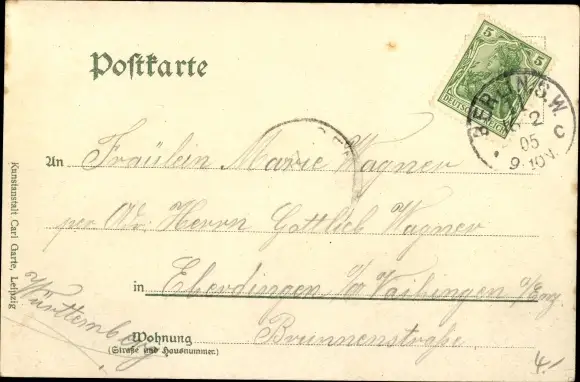 Postkarte
5 5
DEUTSCHES REICH
BERLIN S.W.
2
05
9-10N.
c
An Fräulein Marie Wagner
per Adr. Herrn Gottlieb Wagner
in Eberdingen b/ Vaihingen a/Enz.
Württemberg
Wohnung Brunnenstraße.
(Straße und Hausnummer.)
Kunstanstalt Carl Garte, Leipzig
4.-